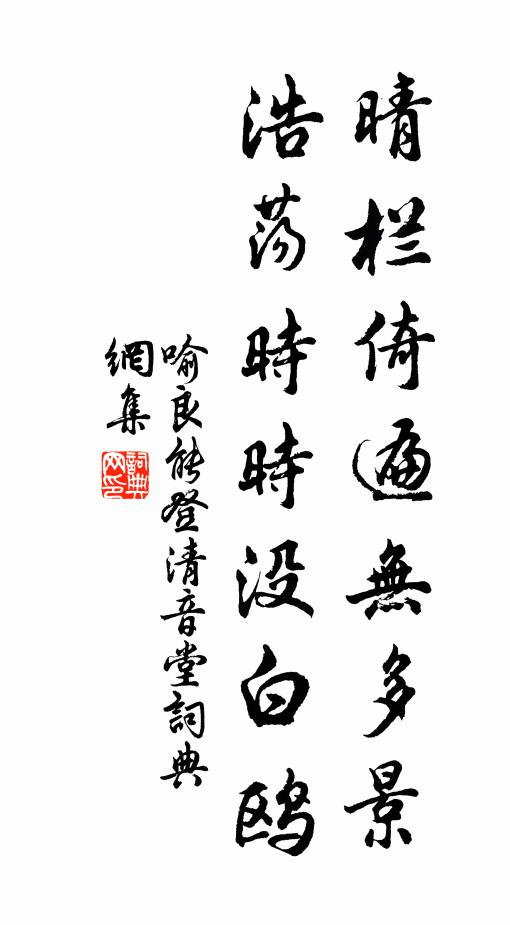 晴栏倚遍無多景
浩荡時時没白鸥
喻良能登清音堂詞典
網集
詞典網印